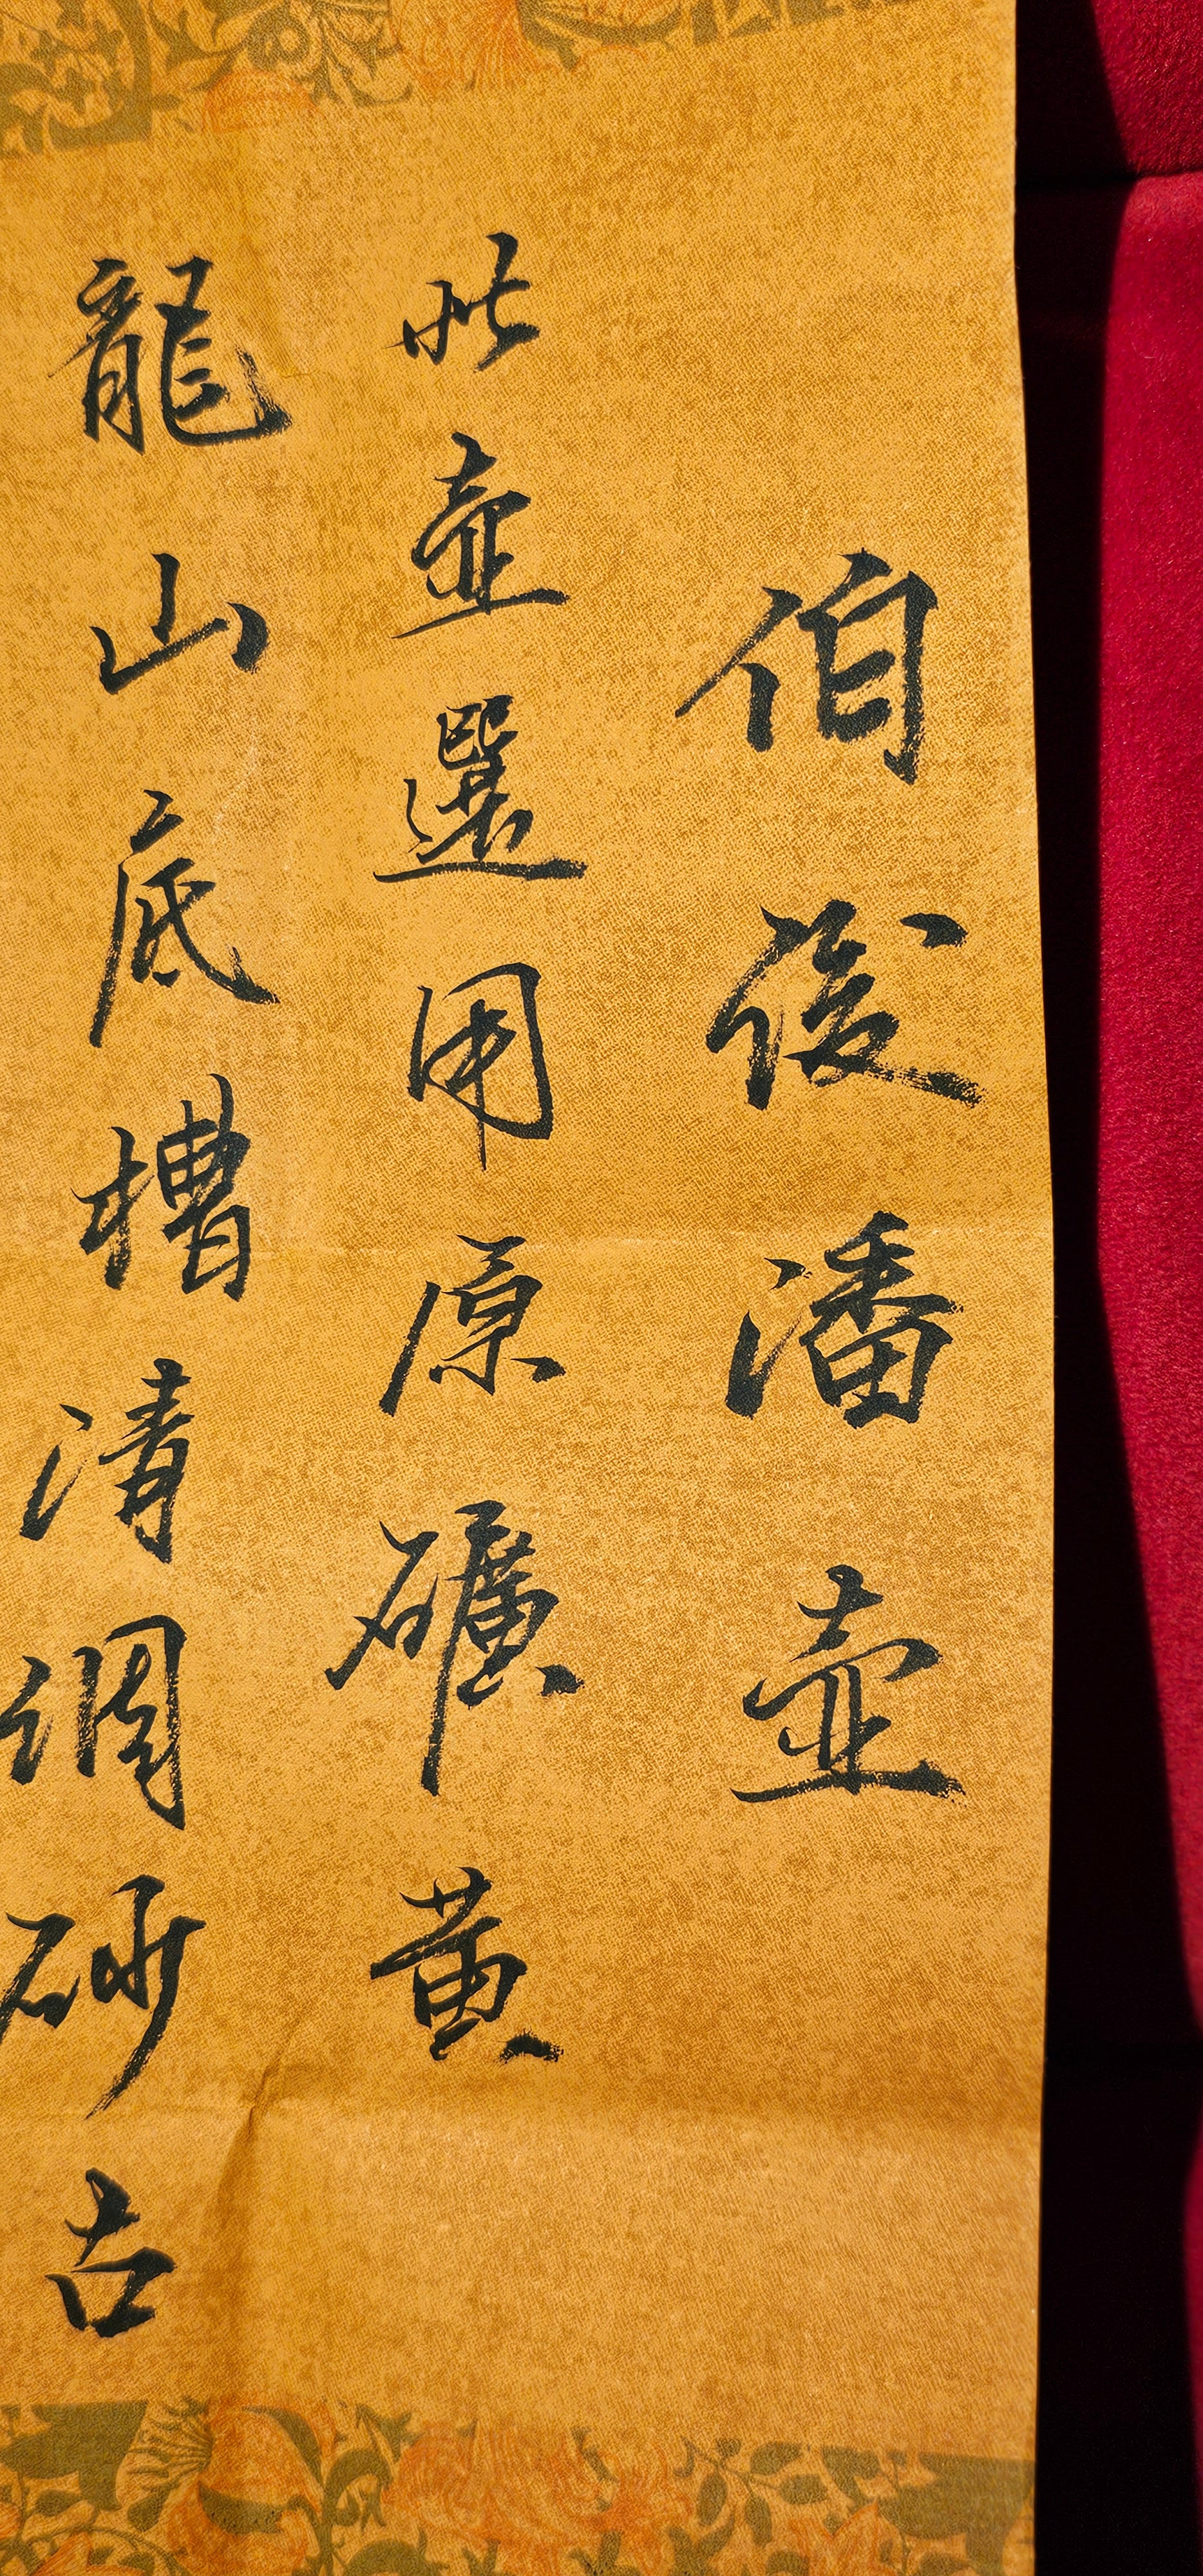 伯俊潘壺
此壺選用原礦黃
龍山底槽清調砂古